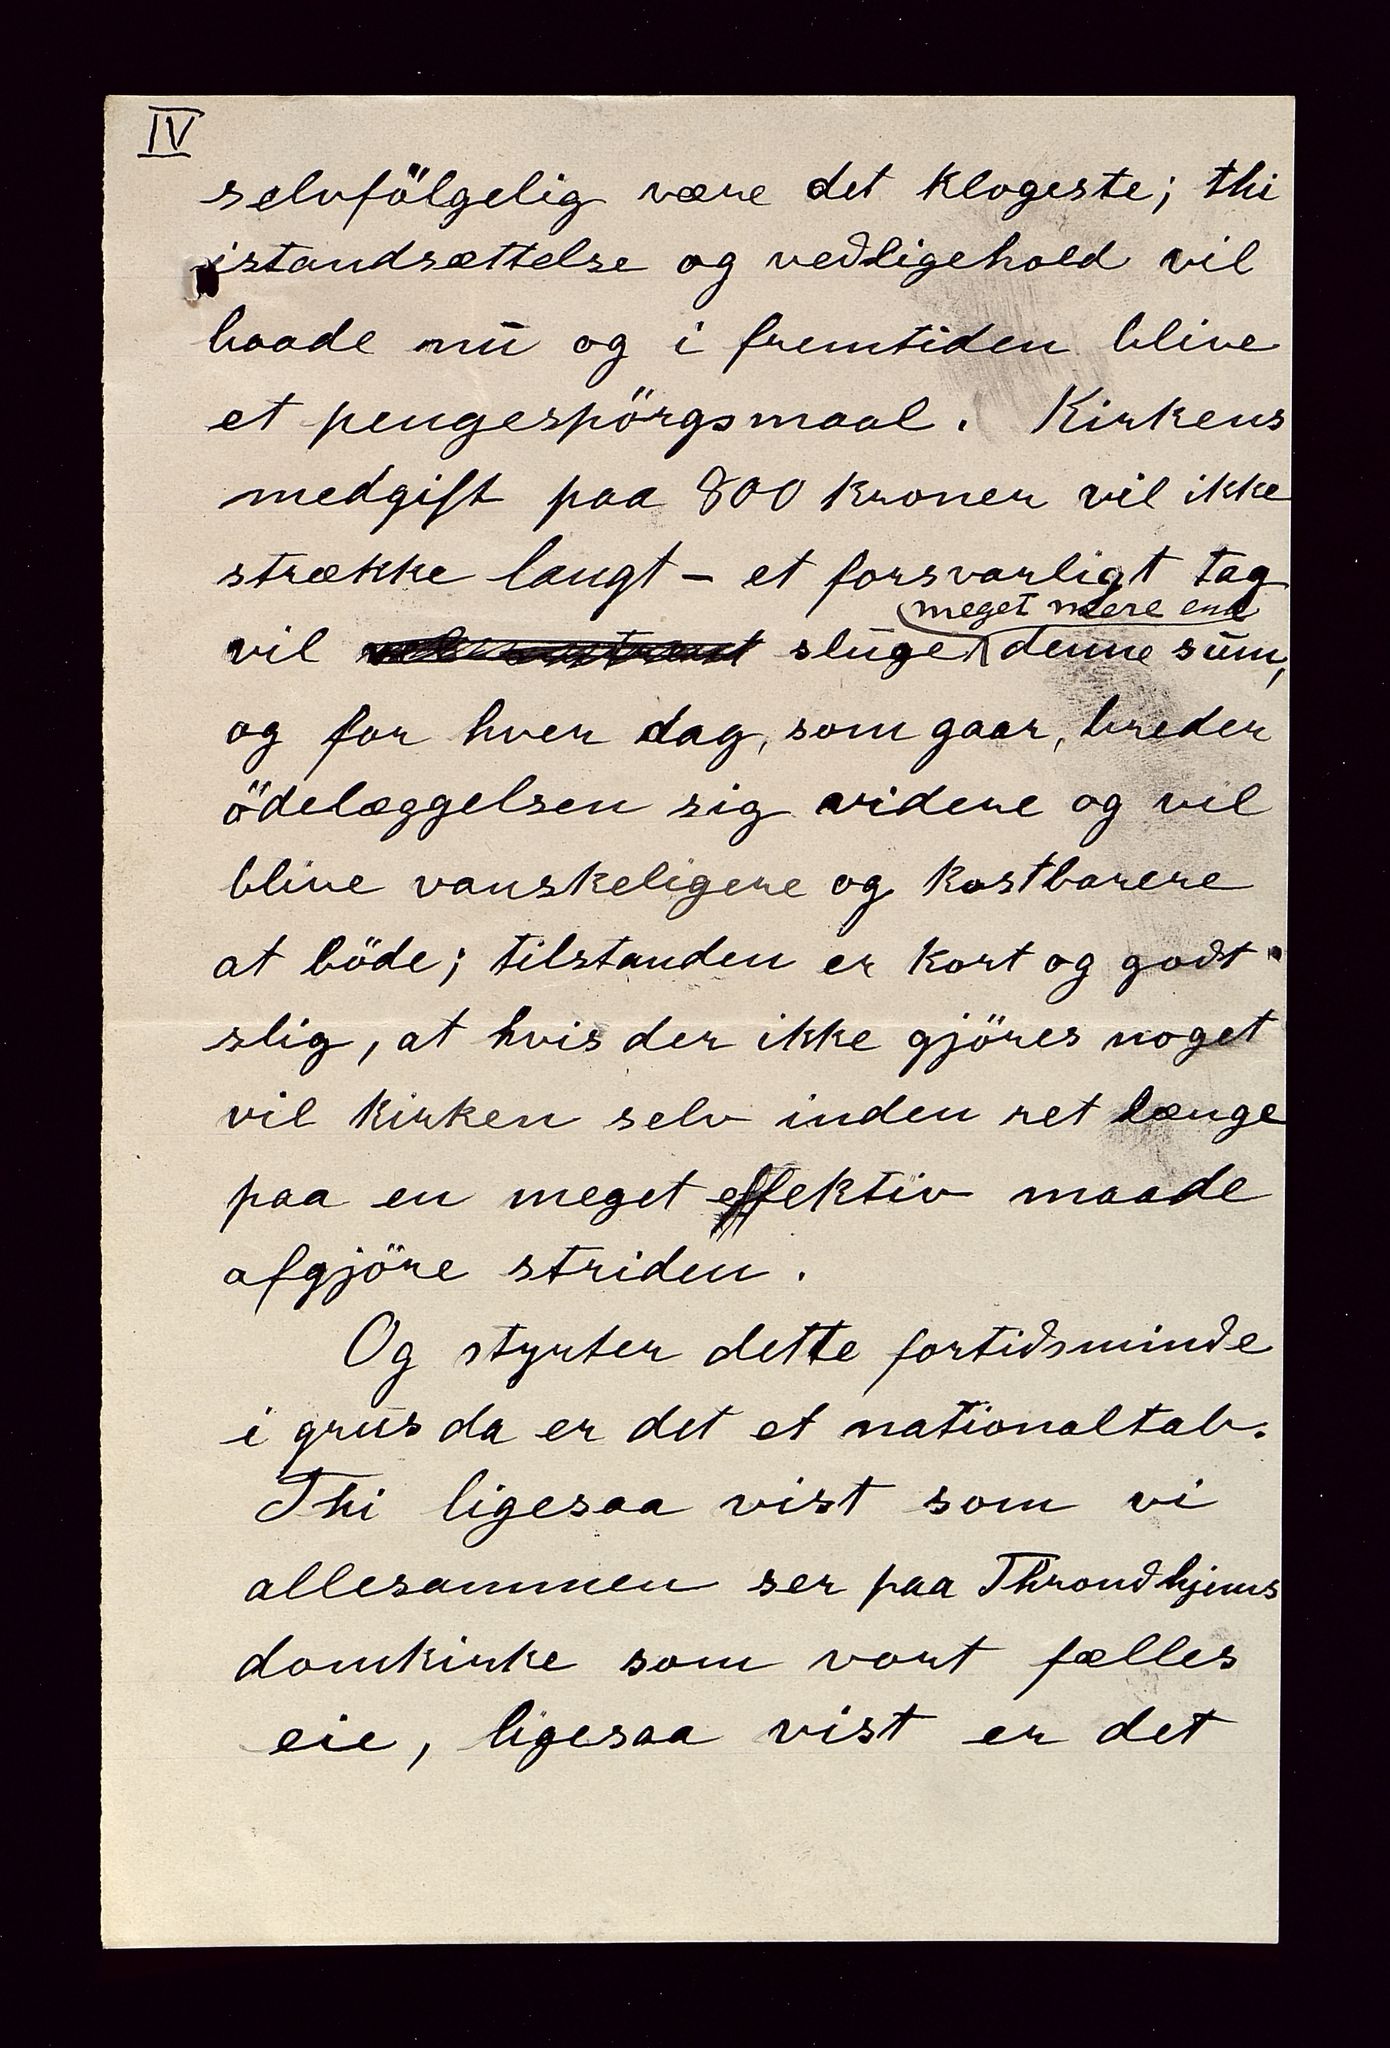 IV
selvfölgelig være det klogeste; thi
istandsættelse og vedligehold vil
baade nu og i fremtiden blive
et pengespörgsmaal. Kirkens
medgift paa 800 kroner vil ikke
strække langt - et forsvarligt tag
meget mere end
vil sluge denne sum,
og for hver dag, som gaar, breder
ödelæggelsen sig videre og vil
blive vanskeligere og kostbarere
at böde; tilstanden er kort og godt
slig, at hvis der ikke gjöres noget
vil kirken selv inden ret længe
paa en meget effektiv maade
afgjöre striden.
Og styrter dette fortidsminde
i grus da er det et nationaltab.
Thi ligesaa vist som vi
allesammen ser paa Throndhjems
domkirke som vort fælles
eie, ligesaa vist er det